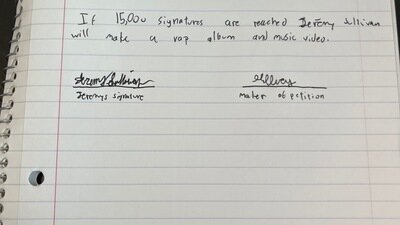 If 15,000 signatures are reached Jeremy Sullivan
will make a rap album and music video.
Jeremy Sullivan
Jeremys signature
maker of petition